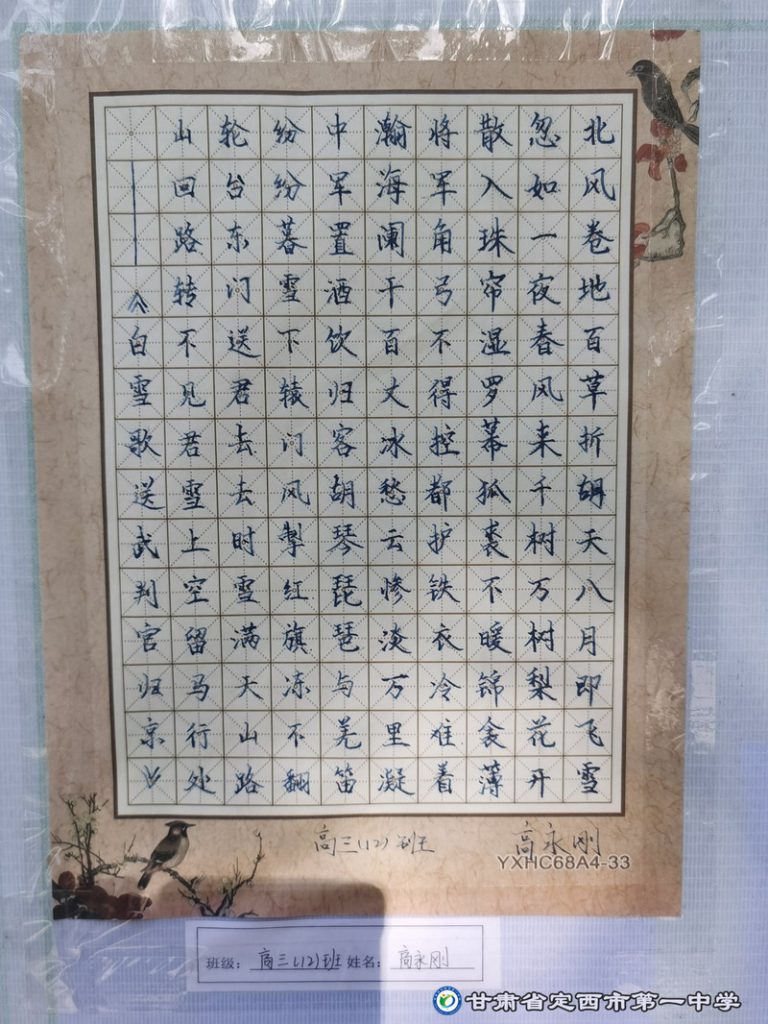 北风卷地百草折胡天八月即飞雪
忽如一夜春风来千树万树梨花开
散入珠帘湿罗幕狐裘不暖锦衾薄
将军角弓不得控都护铁衣冷难着
瀚海阑干百丈冰愁云惨淡万里凝
中军置酒饮归客胡琴琵琶与羌笛
纷纷暮雪下辕门风掣红旗冻不翻
轮台东门送君去去时雪满天山路
山回路转不见君雪上空留马行处
——《白雪歌送武判官归京》
高三(12)班 高永刚
YXHC68A4-33
班级: 高三(12)班 姓名: 高永刚
甘肃省定西市第一中学